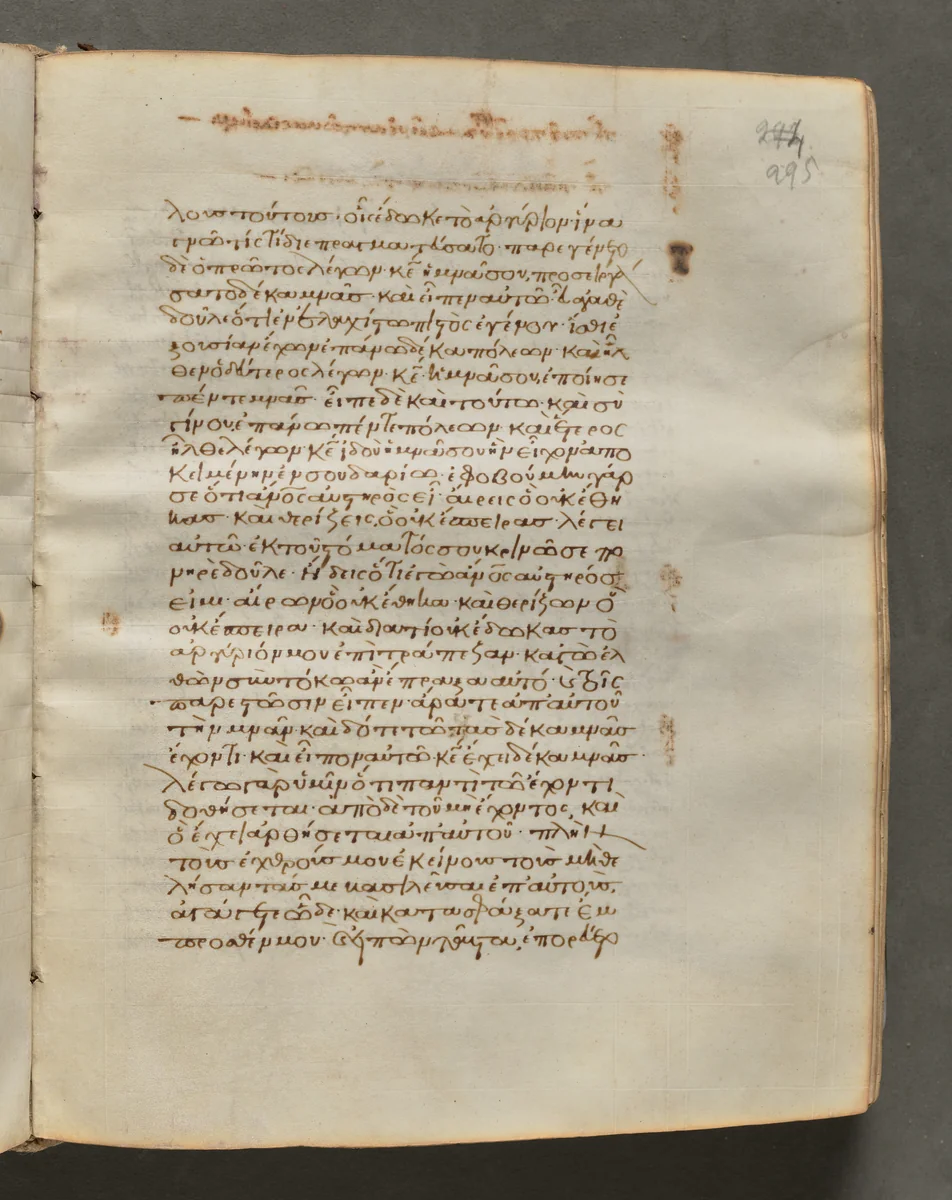 294
295
λους τούτους· οἷς ἔδωκε τὸ ἀργύριον· ἵνα
γνῶ τίς τί διεπραγματεύσατο· παρεγένετο
δὲ ὁ πρῶτος λέγων· κε̅ ἡ μνᾶ σου, προσειργά
σατο δέκα μνᾶς· καὶ εἶπεν αὐτῶ· εὖ ἀγαθὲ
δοῦλε ὅτι ἐν ἐλαχίστω πιστὸς ἐγένου· ἴσθι ἐ
ξουσίαν ἔχων ἐπάνω δέκα πόλεων· καὶ ἦλ
θεν ὁ δεύτερος λέγων· κε̅ ἡ μνᾶ σου, ἐποίησε
πέντε μνᾶς· εἶπε δὲ καὶ τούτω· καὶ σὺ
γίνου, ἐπάνω πέντε πόλεων· καὶ ἕτερος
ἦλθε λέγων· κε̅ ἰδοὺ ἡ μνᾶ σου ἣν εἶχον ἀπο
κειμένην ἐν σουδαρίω· ἐφοβούμην γάρ
σε ὅτι ἄνο̅ς αὐστηρὸς εἶ· αἴρεις ὃ οὐκ ἔθη
κας· καὶ θερίζεις, ὃ οὐκ ἔσπειρας· λέγει
αὐτῶ· ἐκ τοῦ στόματός σου κρινῶ σε πο
νηρὲ δοῦλε· ἤδεις ὅτι ἐγὼ ἄνο̅ς αὐστηρός
εἰμι· αἴρων ὃ οὐκ ἔθηκα· καὶ θερίζων ὃ
οὐκ ἔσπειρα· καὶ διατί οὐκ ἔδωκας τὸ
ἀργύριόν μου ἐπὶ τράπεζαν· καγὼ ἐλ
θὼν σὺν τόκω ἂν ἔπραξα αὐτό· καὶ τοῖς
παρεστῶσιν εἶπεν· ἄρατε ἀπ' αὐτοῦ
τὴν μνᾶν· καὶ δότε τῶ τὰς δέκα μνᾶς
ἔχοντι· καὶ εἶπον αὐτῶ· κε̅ ἔχει δέκα μνᾶς·
λέγω γὰρ ὑμῖν ὅτι παντὶ τῶ ἔχοντι
δοθήσεται· ἀπὸ δὲ τοῦ μὴ ἔχοντος, καὶ
ὃ ἔχει ἀρθήσεται ἀπ' αὐτοῦ· πλὴν
τοὺς ἐχθρούς μου ἐκείνους τοὺς μὴ θε
λήσαντάς με βασιλεῦσαι ἐπ' αὐτούς,
ἀγάγετε ὧδε· καὶ κατασφάξατε ἔμ
προσθέν μου· καὶ εἰπὼν ταῦτα, ἐπορεύετο